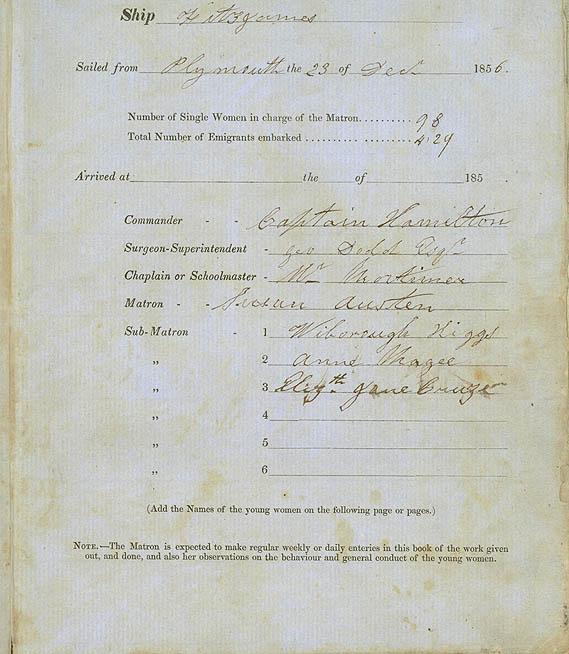 Ship Fitzjames
Sailed from Plymouth the 23 of Decr 1856.
Number of Single Women in charge of the Matron.......... 98
Total Number of Emigrants embarked .......... .......... 429
Arrived at the of 185
Commander - - Captain Hamilton
Surgeon-Superintendent - Geo Dodd Esqr
Chaplain or Schoolmaster - Mr Mortimer
Matron - - Susan Austen
Sub-Matron - 1 Wiborough Higgs
„ 2 Anne Magee
„ 3 Elizth. Jane Cruze
„ 4
„ 5
„ 6
(Add the Names of the young women on the following page or pages.)
NOTE.—The Matron is expected to make regular weekly or daily enteries in this book of the work given
out, and done, and also her observations on the behaviour and general conduct of the young women.